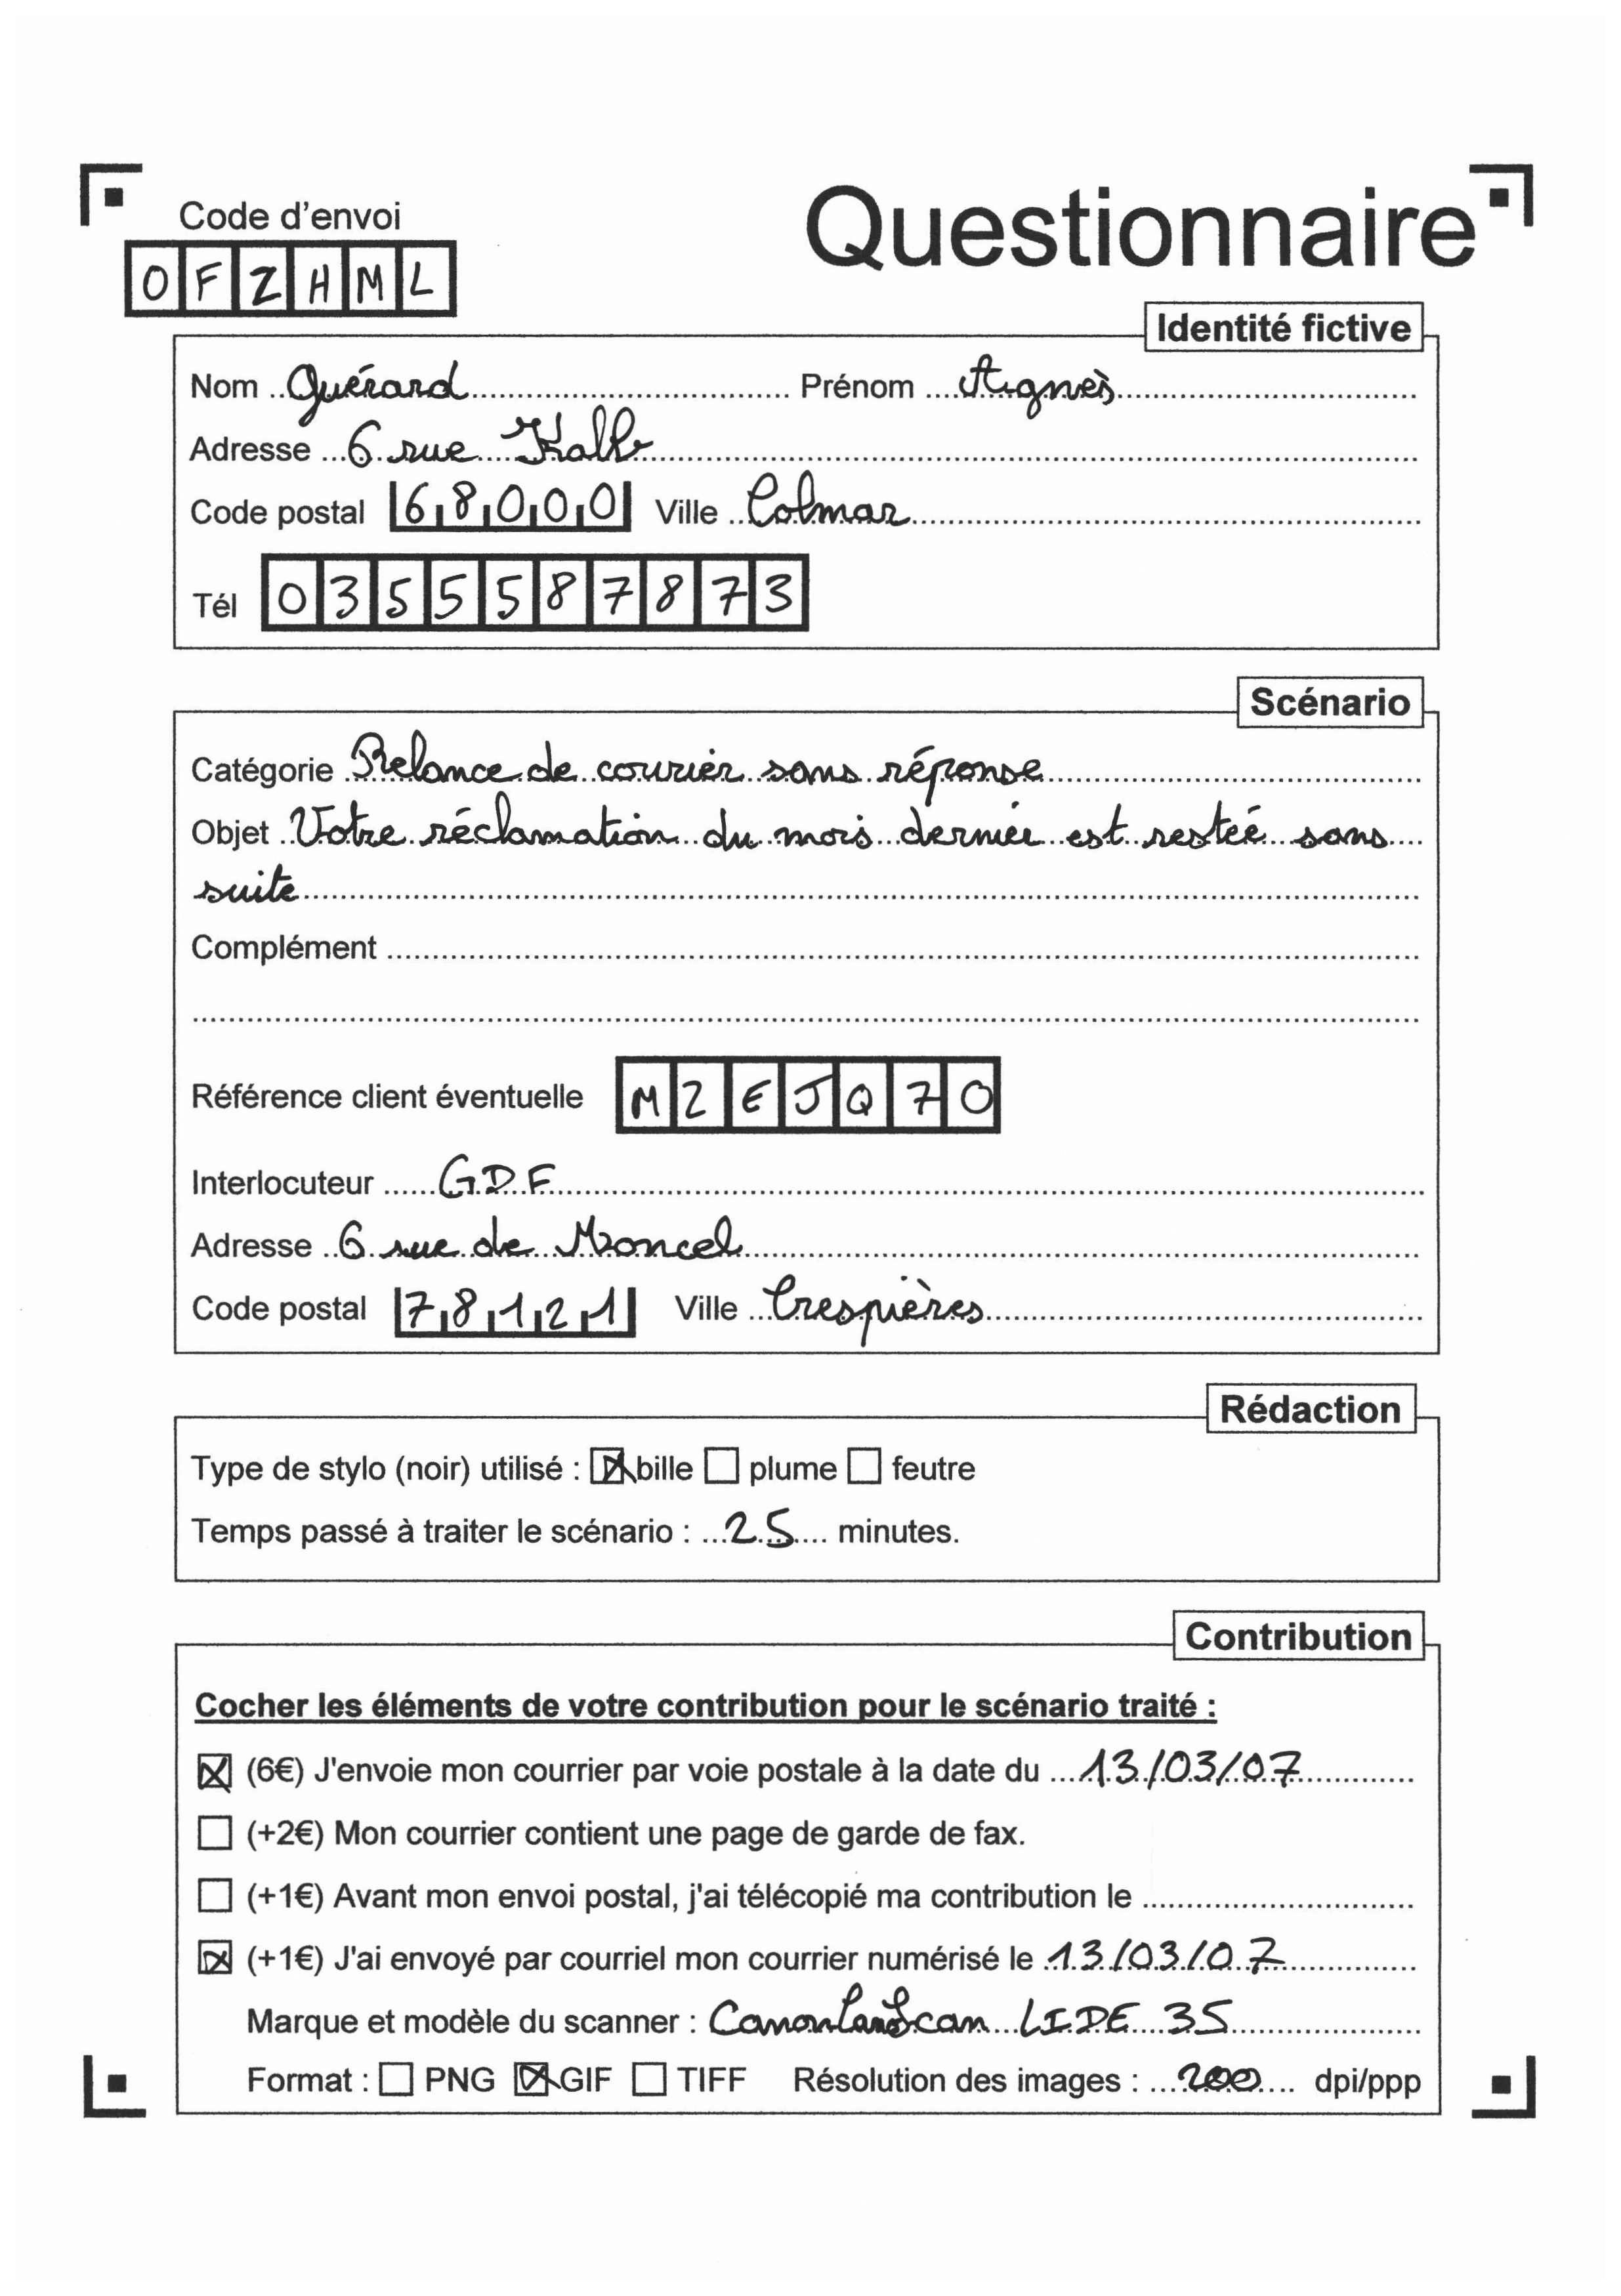 Code d'envoi
Questionnaire
OFZHML
Identité fictive
Nom Guérard Prénom Agnès
Adresse 6 rue Kalb
Code postal 68000 Ville Colmar
Tél 0355587873
Scénario
Catégorie Relance de courier sans réponse
Objet Votre réclamation du mois dernier est restée sans
suite
Complément
Référence client éventuelle MZEJQ70
Interlocuteur GDF
Adresse 6 rue de Moncel
Code postal 78121 Ville Crespières
Rédaction
Type de stylo (noir) utilisé : bille plume feutre
Temps passé à traiter le scénario : 25 minutes.
Contribution
Cocher les éléments de votre contribution pour le scénario traité :
(6€) J'envoie mon courrier par voie postale à la date du 13/03/07
(+2€) Mon courrier contient une page de garde de fax.
(+1€) Avant mon envoi postal, j'ai télécopié ma contribution le
(+1€) J'ai envoyé par courriel mon courrier numérisé le 13/03/07
Marque et modèle du scanner : Canon LIDE 35
Format : PNG GIF TIFF Résolution des images : 200 dpi/ppp